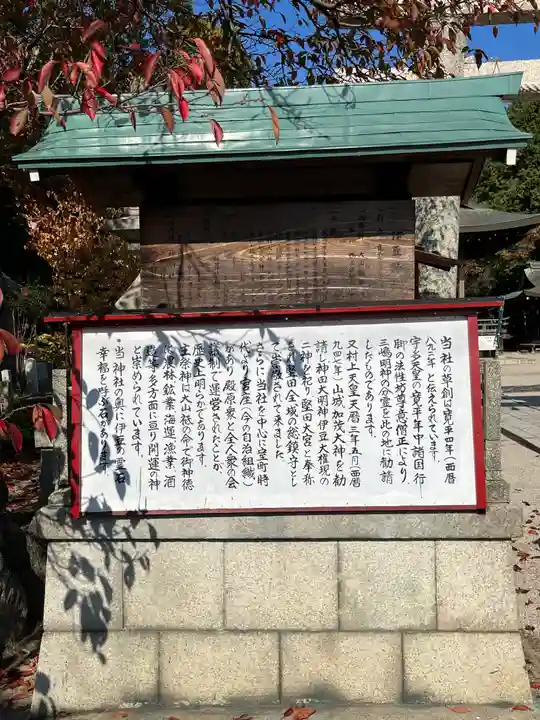 当社の草創は寛平四年(西暦
八九二年)と伝えられています。
宇多天皇の寛平年中諸国行
脚の法性坊尊意僧正により、
三嶋明神の分霊を此の地に勧請
したものであります。
又村上天皇天暦三年五月(西暦
九四七年)山城加茂大神を勧
請し神田大明神伊豆大権現の
二神を祀り堅田大宮と奉称
され堅田全域の総鎮守とし
て尊崇されて来ました。
さらに当社を中心に室町時
代より宮座(今の自治組織)
があり殿原衆と全人衆の会
議制で運営されたことが
歴史上明らかであります。
主祭神は大山祇の命で御神徳
は農林鉱業海運漁業、酒
造等多方面に亘り開運の神
と崇められています。
。当神社の奥に伊豆の霊石
幸福を呼ぶ石があります。